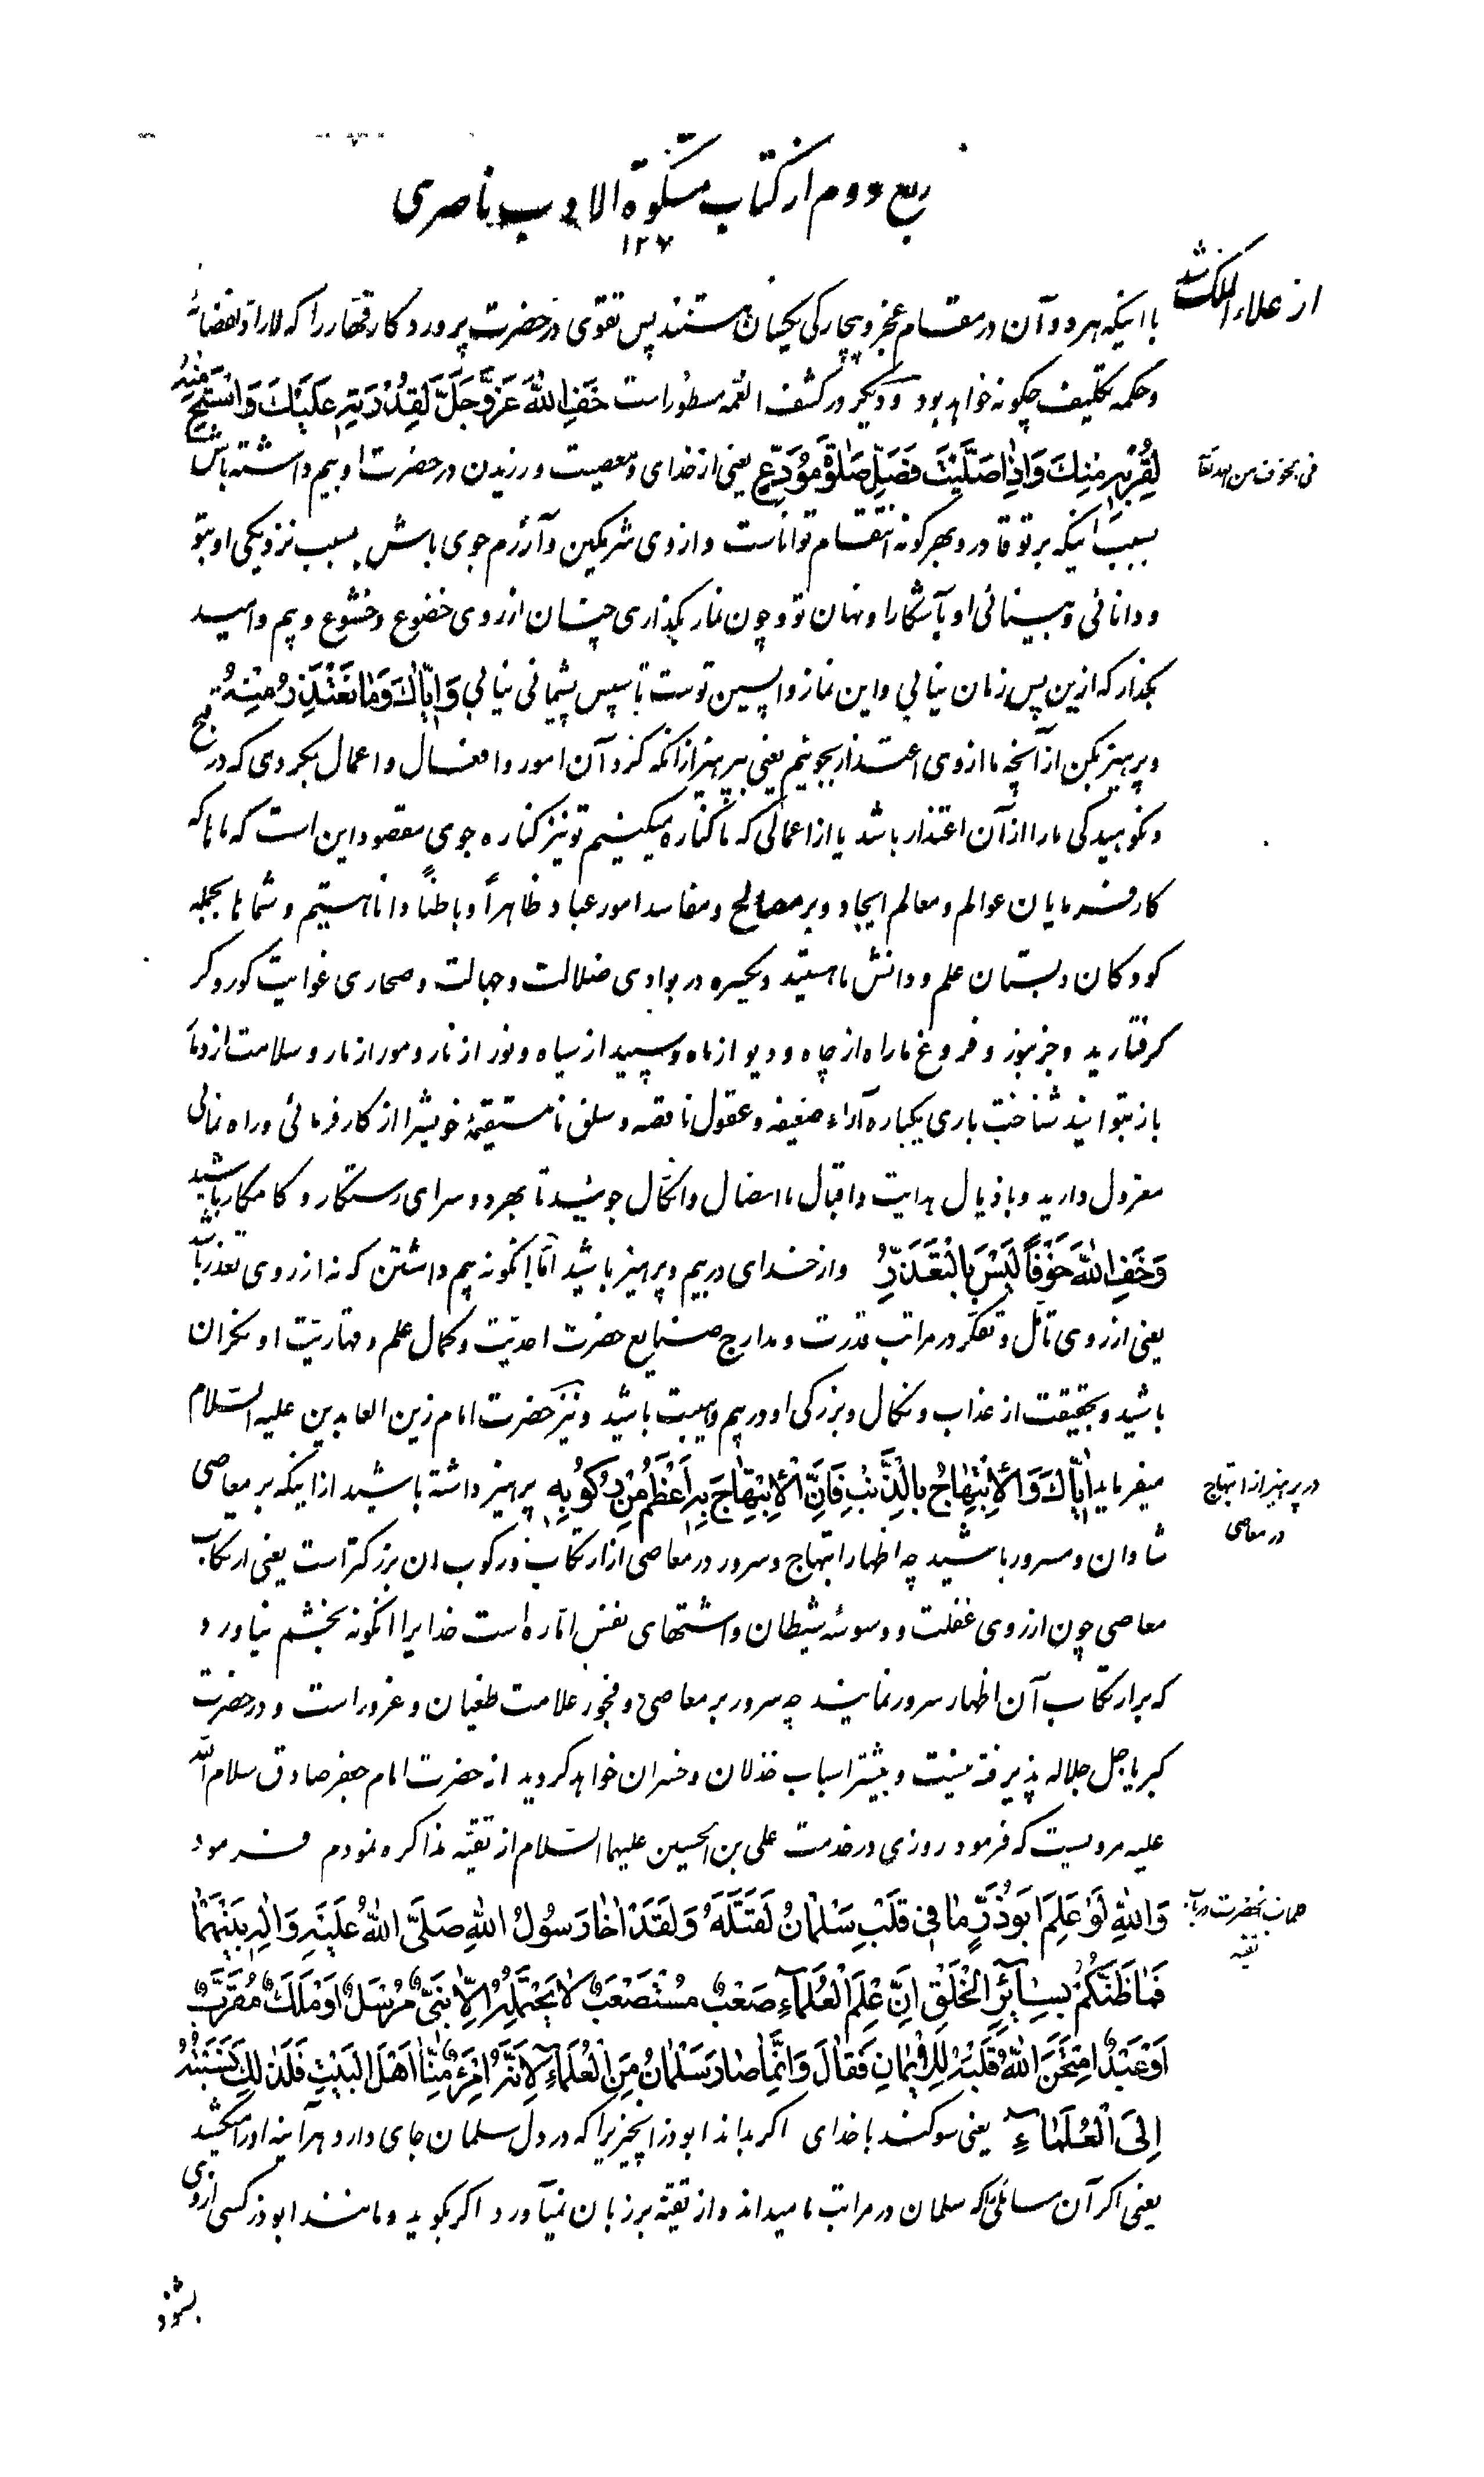 ربع دوم از کتاب مشکوة الادب ناصری
۱۲۷
از علاء الملک شد
با اینکه هر دو آن در مقام عجز و بیچارگی یکسان هستند پس تقوی در حضرت پروردگار قهار را که لاراد لقضائه
و حکمه تکلیف چگونه خواهد بود و دیگر در کشف الغمه مسطور است خَفِ اللهَ عَزَّوَجَلَّ لِقُدْرَتِهِ عَلَیْكَ وَاسْتَحِ مِنْهُ
لِقُرْبِهِ مِنْكَ وَاِذَا صَلَّیْتَ فَصَلِّ صَلٰوةَ مُوَدِّعٍ یعنی از خدای و معصیت ورزیدن در حضرت او بیم داشته باش
فی الخوف من الله تعالی
بسبب اینکه بر تو قادر و بهر گونه انتقام تواناست و از وی شرمگین و آزرم جوی باش بسبب نزدیکی او بتو
و دانائی و بینائی او بآشکار او نهان تو و چون نماز بگذاری چنان از روی خضوع و خشوع و بیم و امید
بگذار که ازین پس زمان نیابی و این نماز واپسین تو ست تا سپس پشیمانی نیابی وَاِیَّاكَ وَمٰا تَعْتَذِرُ مِنْهُ
و پرهیز بکن از آنچه ما از وی اعتذار بجوئیم یعنی بپرهیز از آنکه گرد آن امور و افعال و اعمال بگردی که در قبح
و نکوهیدگی ما را از آن اعتذار باشد یا از اعمالی که ما کناره میکنیم تو نیز کناره جوی مقصود این است که ما که
کارفرمایان عوالم و معالم ایجاد و بر مصالح و مفاسد امور عباد ظاهراً و باطناً دانا هستیم و شماها بجمله
کودکان دبستان علم و دانش ما هستید و یکسره در بوادی ضلالت و جهالت و صحاری غوایت کور و کر
گرفتارید و جز بنور و فروغ ما راه از چاه و دیو از ماه و سپید از سیاه و نور از نار و مور از مار و سلامت از دمار
باز نتوانید شناخت باری یکباره آراء ضعیفه و عقول ناقصه و سلیق نامستقیمهٔ خویش را از کارفرمائی و راه نمائی
معزول دارید و باذیال هدایت و اقبال ما اتصال و اتکال جوئید تا بهر دو سرای رستگار و کامکار باشید
وَخَفِ اللهَ خَوْفاً لَیْسَ بِالتَّعَذُّرِ و از خدای در بیم و پرهیز باشید امّا اینگونه بیم داشتن که نه از روی تعذر باشد
یعنی از روی تأمّل و تفکّر در مراتب قدرت و مدارج صنایع حضرت احدیّت و کمال علم و قهاریّت او نگران
باشید و بحقیقت از عذاب و نکال و بزرگی او در بیم و هیبت باشید و نیز حضرت امام زین العابدین علیه السّلام
میفرماید اِیّٰاكَ وَالْاِبْتِهٰاجَ بِالذَّنْبِ فَاِنَّ الْاِبْتِهٰاجَ بِهِ اَعْظَمُ مِنْ رُكُوبِهِ پرهیز داشته باشید از اینکه بر معاصی
در پرهیز از ابتهاج
در معاصی
شادان و مسرور باشید چه اظهار ابتهاج و سرور در معاصی از ارتکاب و رکوب ان بزرگتر است یعنی ارتکاب
معاصی چون از روی غفلت و وسوسهٔ شیطان و اشتهای نفس امّاره است خدایرا انگونه بخشم نیاورد
که بر ارتکاب آن اظهار سرور نمایند چه سرور بر معاصی و فجور علامت طغیان و غرور است و در حضرت
کبریا جل جلاله پذیرفته نیست و بیشتر اسباب خذلان و خسران خواهد گردید از حضرت امام جعفر صادق سلام الله
علیه مرویست که فرمود روزی در خدمت علی بن الحسین علیهما السّلام از تقیّه مذاکره نمودم فرمود
وَاللهِ لَوْ عَلِمَ اَبُوذَرٍّ مٰا فِی قَلْبِ سَلْمٰانَ لَقَتَلَهُ وَلَقَدْ اٰخٰا رَسُولُ اللهِ صَلَّی اللهُ عَلَیْهِ وَاٰلِهِ بَیْنَهُمٰا
کلمات آنحضرت در باب
تقیه
فَمٰا ظَنُّكُمْ بِسٰآئِرِ الْخَلْقِ اِنَّ عِلْمَ الْعُلَمٰآءِ صَعْبٌ مُسْتَصْعَبٌ لٰا یَحْتَمِلُهُ اِلّٰا نَبِیٌّ مُرْسَلٌ اَوْ مَلَكٌ مُقَرَّبٌ
اَوْ عَبْدٌ امْتَحَنَ اللهُ قَلْبَهُ لِلْاِیمٰانِ فَقٰالَ وَاِنَّمٰا صٰارَ سَلْمٰانُ مِنَ الْعُلَمٰآءِ لِاَنَّهُ امْرَءٌ مِنّٰا اَهْلَ الْبَیْتِ فَلِذٰلِكَ نَسَبْتُهُ
اِلَی الْعُلَمٰاءِ یعنی سوگند با خدای اگر بداند ابوذر انچیزیرا که در دل سلمان جای دارد هرآینه او را میکشد
یعنی اگر آن مسائلی را که سلمان در مراتب ما میداند و از تقیّه بر زبان نمیآورد اگر بگوید و مانند ابوذر کسی از وی
بشنود